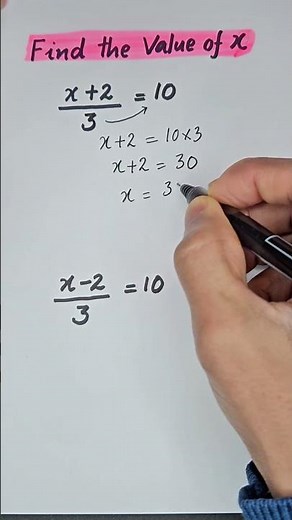 Find the Value of x
x+2 / 3 = 10
x+2 = 10×3
x+2 = 30
x = 3
x-2 / 3 = 10